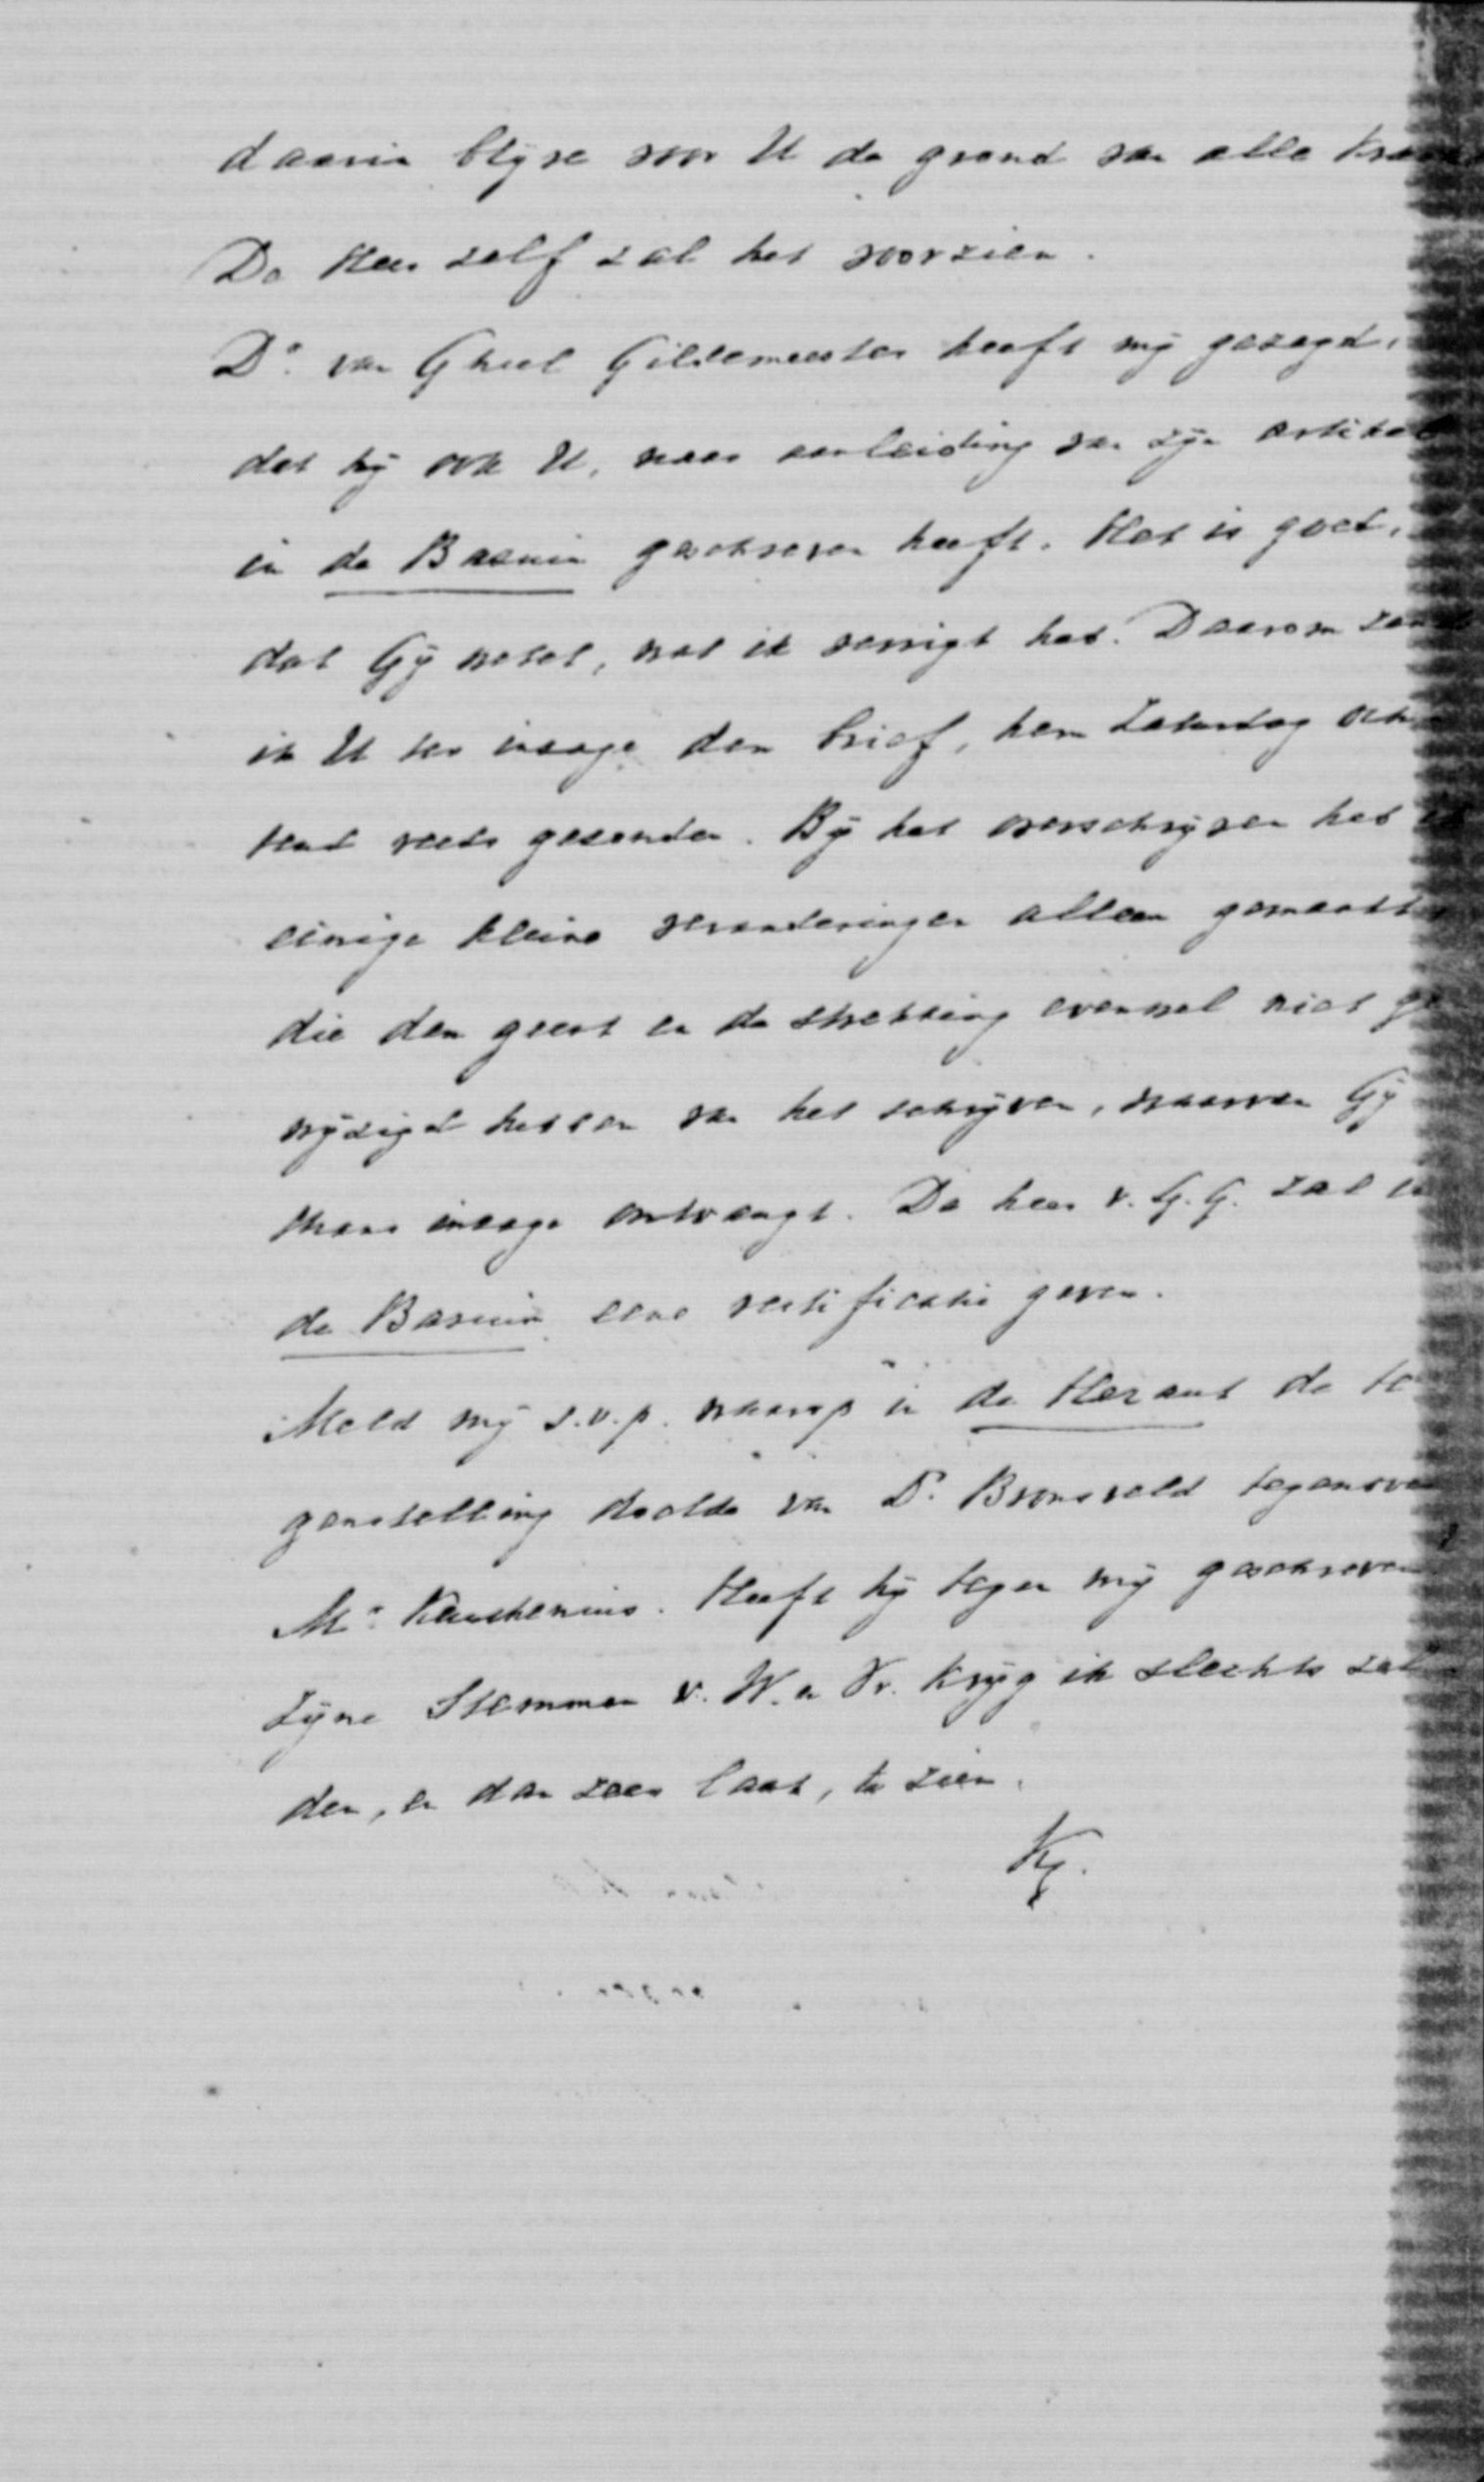 daarin blyve voor U de grond van alle
De Heer zelf zal het voorzien.
Ds. van Gheel Gildemeester heeft mij gezegd,
dat hij ook U, naar aanleiding van zijn artikel
in de Bazuin geschreven heeft. Het is goed,
dat Gij wetet, wat ik verrigt heb. Daarom zend
ik U ter inzage den brief, hem Zaturdag
reeds gezonden. Bij het overschrijven heb
eenige kleine veranderingen alleen gemaakt,
die den geest en de strekking evenwel niet ge
wijzigd hebben van het schrijven, waarvan Gij
thans inzage ontvangt. De heer v. G. G. zal in
de Bazuin eene rectificatie geven.
Meld mij s.v.p. waarop in de Heraut de te
genstelling doelde van Dr. Bronsveld tegenover
Mr. Keuchenius. Heeft hij tegen mij geschreven
Zijne Stemmen v. W. en Vr. krijg ik slechts zel
den, en dan zeer laat, te zien.